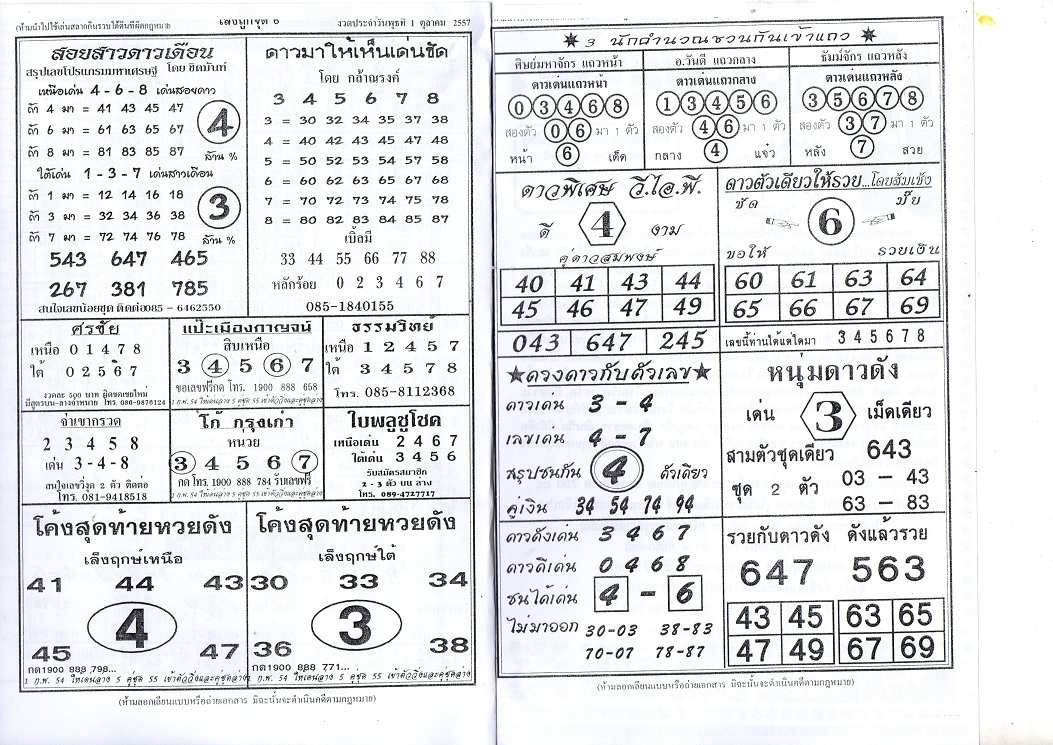 (ห้ามนำไปใช้เล่นสลากกินรวบได้ดีนที่ผิดกฎหมาย
งวดประจำวันพุธที่ 1 ตุลาคม 2557
สอยสาวดาวเดือน
สรุปเลขโปรแกรมมหาเศรษฐี โดย ชิตมันท์
เหนือเด่น 4 - 6 - 8 เด่นสอยดาว
ถ้า 4 มา = 41 43 45 47
ถ้า 6 มา = 61 63 65 67
ถ้า 8 มา = 81 83 85 87
4
ล้าน %
ใต้เด่น 1 - 3 - 7 เด่นสาวเดือน
ถ้า 1 มา = 12 14 16 18
ถ้า 3 มา = 32 34 36 38
ถ้า 7 มา = 72 74 76 78
3
ล้าน %
543 647 465
267 381 785
สนใจเลขน้อยชุด ติดต่อ085 - 6462550
ดาวมาให้เห็นเด่นชัด
โดย กล้าณรงค์
3 4 5 6 7 8
3 = 30 32 34 35 37 38
4 = 40 42 43 45 47 48
5 = 50 52 53 54 57 58
6 = 60 62 63 65 67 68
7 = 70 72 73 74 75 78
8 = 80 82 83 84 85 87
เบิ้ลมี
33 44 55 66 77 88
หลักร้อย 0 2 3 4 6 7
085-1840155
ศรชัย
เหนือ 0 1 4 7 8
ใต้ 0 2 5 6 7
งวดละ 500 บาท ผิดชดเชยใหม่
มีสูตรบน-ล่างจำหน่าย โทร. 086-0876124
แป๊ะเมืองกาญจน์
สิบเหนือ
3 4 5 6 7
ขอเลขฟรีกด โทร. 1900 888 658
1 ก.พ. 54 ให้เดนล่าง 5 คู่ชุด 55 เข้าตัววิ่งและคู่ชุดล่าง
ธรรมวิทย์
เหนือ 1 2 4 5 7
ใต้ 3 4 5 7 8
โทร. 085-8112368
จ่าเขากรวด
2 3 4 5 8
เด่น 3 - 4 - 8
สนใจเลขวิ่งรูด 2 ตัว ติดต่อ
โทร. 081-9418518
โก้ กรุงเก่า
หนวย
3 4 5 6 7
กด โทร. 1900 888 784 รับเลขฟรี
1 ก.พ. 54 ให้เดนล่าง 5 คู่ชุด 55 เข้าตัววิ่งและคู่ชุดล่าง
ใบพลูชูโชค
เหนือเด่น 2 4 6 7
ใต้เด่น 3 4 5 6
รับสมัครสมาชิก
2 - 3 ตัว บน ล่าง
โทร. 089-4727717
โค้งสุดท้ายหวยดัง
เล็งฤกษ์เหนือ
41 44 43
4
45 47
กด1900 888 798...
1 ก.พ. 54 ให้เดนล่าง 5 คู่ชุด 55 เข้าตัววิ่งและคู่ชุดล่าง
โค้งสุดท้ายหวยดัง
เล็งฤกษ์ใต้
30 33 34
3
36 38
กด1900 888 771...
1 ก.พ. 54 ให้เดนล่าง 5 คู่ชุด 55 เข้าตัววิ่งและคู่ชุดล่าง
(ห้ามลอกเลียนแบบหรือถ่ายเอกสาร มิฉะนั้นจะดำเนินคดีตามกฎหมาย)
3 นักคำนวณชวนกันเข้าแถว
ศิษย์มหาจักร แถวหน้า
ดาวเด่นแถวหน้า
0 3 4 6 8
สองตัว 0 6 มา 1 ตัว
หน้า 6 เด็ด
อ.วันดี แถวกลาง
ดาวเด่นแถวกลาง
1 3 4 5 6
สองตัว 4 6 มา 1 ตัว
กลาง 4 แจ๋ว
ธัมม์จักร แถวหลัง
ดาวเด่นแถวหลัง
3 5 6 7 8
สองตัว 3 7 มา 1 ตัว
หลัง 7 สวย
ดาวพิเศษ วี.ไอ.พี.
ดี 4 งาม
คู่ดาวสมพงษ์
40 41 43 44
45 46 47 49
ดาวตัวเดียวให้รวย...โดยส้มเช้ง
ชัด 6 บึ้ย
ขอให้ รวยเงิน
60 61 63 64
65 66 67 69
043 647 245
เลขนี้ท่านได้แต่ใดมา 3 4 5 6 7 8
ดวงดาวกับตัวเลข
ดาวเด่น 3 - 4
เลขเด่น 4 - 7
สรุปชนกัน 4 ตัวเดียว
คู่เงิน 34 54 74 94
หนุ่มดาวดัง
เด่น 3 เม็ดเดียว
สามตัวชุดเดียว 643
ชุด 2 ตัว 03 - 43
63 - 83
ดาวดังเด่น 3 4 6 7
ดาวดีเด่น 0 4 6 8
ชนได้เด่น 4 - 6
ไม่มาออก 30-03 38-83
70-07 78-87
รวยกับดาวดัง ดังแล้วรวย
647 563
43 45 63 65
47 49 67 69
(ห้ามลอกเลียนแบบหรือถ่ายเอกสาร มิฉะนั้นจะดำเนินคดีตามกฎหมาย)